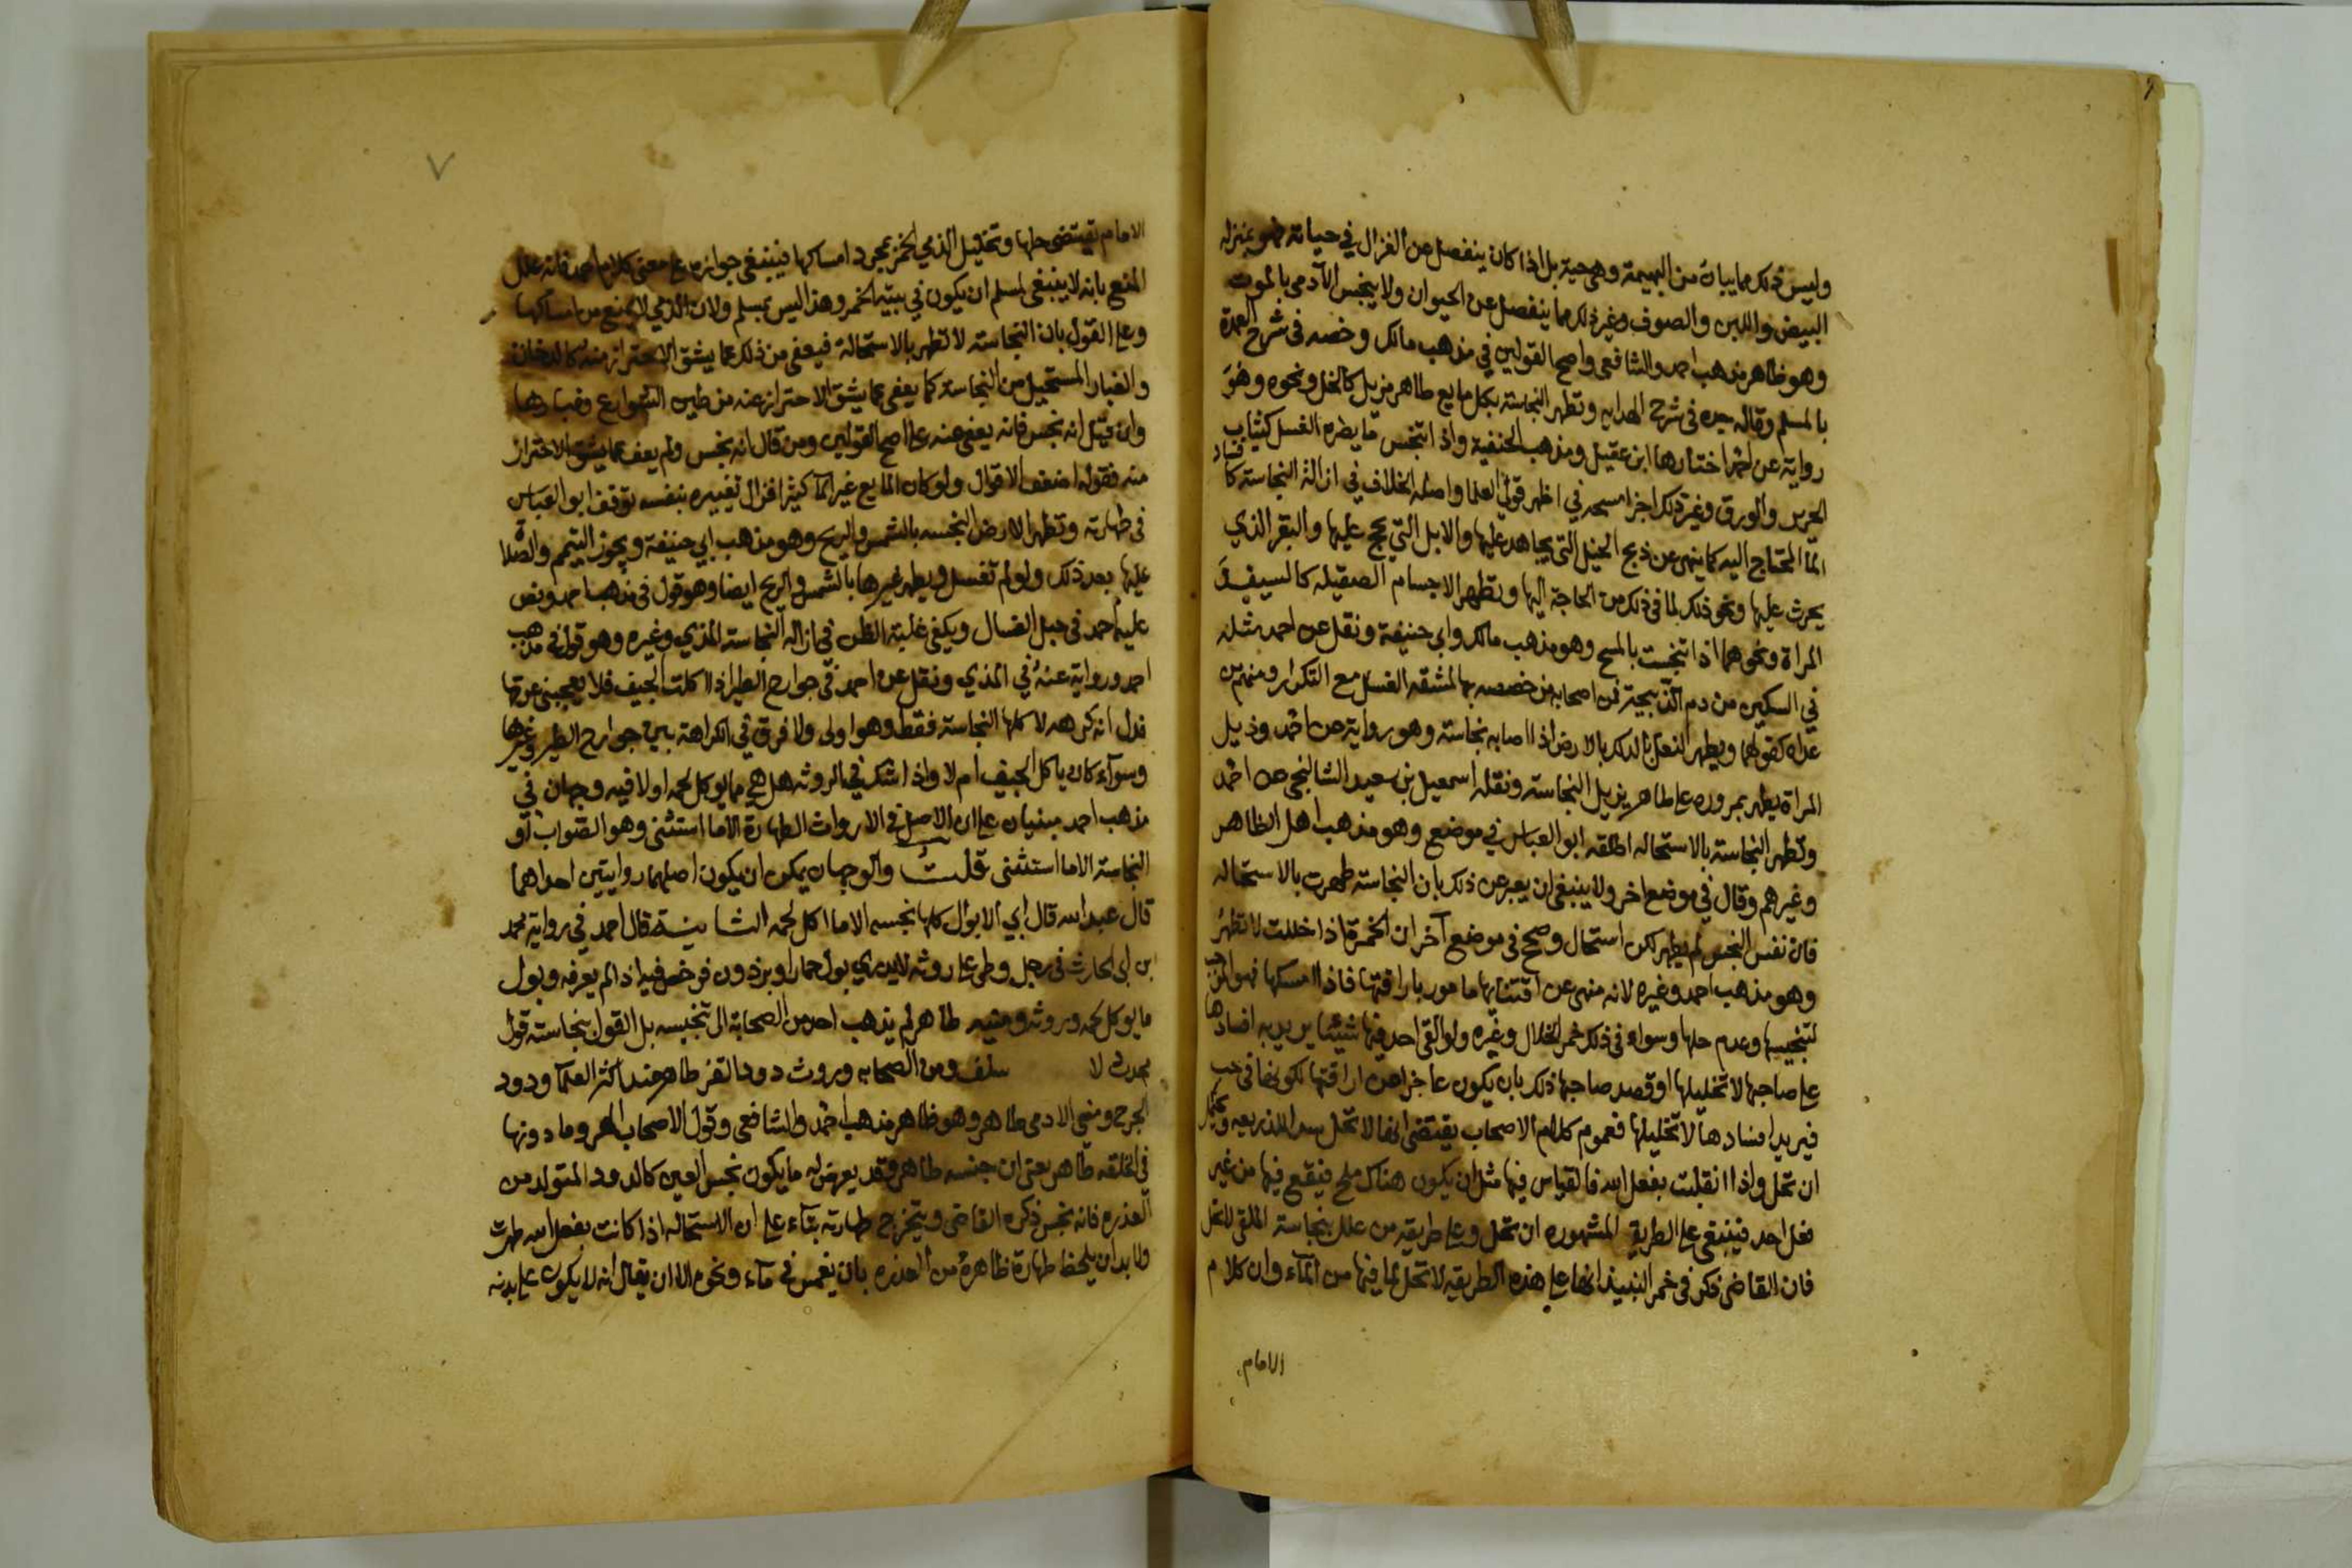 وليس ذلك مما يبان من البهيمة وهي حية بل اذا كان ينفصل عن الغزال في حياته فهو بمنزلة
البيض واللبن والصوف وغير ذلك مما ينفصل عن الحيوان ولا ينجس الآدمي بالموت
وهو ظاهر مذهب احمد والشافعي واصح القولين في مذهب مالك وخصه في شرح العمدة
بالمسلم وقاله جده في شرح الهدايه وتطهر النجاسة بكل مايع طاهر يزيل كالخل ونحوه وهو
رواية عن احمد اختارها ابن عقيل ومذهب الحنفية واذا تنجس ما يضره الغسل كثياب
الحرير والورق وغير ذلك اجزا مسحه في اظهر قولي العلما واصله الخلاف في ازالة النجاسة كا فساد
الما المحتاج اليه كما ينهى عن ذبح الخيل التي يجاهد عليها والابل التي يحج عليها والبقر الذي
يحرث عليها ونحو ذلك لما في ذلك من الحاجة اليها وتطهر الاجسام الصقيله كالسيف و
المراة ونحوهما اذا تنجست بالمسح وهو مذهب مالك وابي حنيفة ونقل عن احمد مثله
في السكين من دم الذبيحة فمن اصحابه من خصصه بها لمشقه الغسل مع التكرار ومنهم من
عداه كقولهما ويطهر النعل بالدلك بالارض اذا اصابه نجاسة وهو رواية عن احمد وذيل
المراة يطهر بمروره على طاهر يزيل النجاسة ونقله اسمعيل بن سعيد الشالنجي عن احمد
وتطهر النجاسة بالاستحاله اطلقه ابو العباس في موضع وهو مذهب اهل الظاهر
وغيرهم وقال في موضع اخر ولا ينبغي ان يعبر عن ذلك بان النجاسة طهرت بالاستحاله
فان نفس النجس لم يطهر لكن استحال وصحح في موضع آخر ان الخمرة اذا خللت لا تطهر
وهو مذهب احمد وغيره لانه منهي عن اقتنايها مامور باراقتها فاذا امسكها فهو الموجب
لتنجيسها وعدم حلها وسواء في ذلك خمر الخلال وغيره ولو القى احد فيها شيئا يريد به افسادها
على صاحبها لا تخليلها او قصد صاحبها ذلك بان يكون عاجزا عن اراقتها لكونها في حب
فيريد افسادها لا تخليلها فعموم كلام الاصحاب يقتضي انها لا تحل سدا للذريعه ويحتمل
ان تحل واذا انقلبت بفعل الله فالقياس فيها مثل ان يكون هناك ملح فيقع فيها من غير
فعل احد فينبغي على الطريقة المشهوره ان تحل وعلى طريقه من علل بنجاسة الملقى لا تحل
فان القاضي ذكر في خمر النبيذ انها على هذه الطريقه لا تحل لما فيها من الماء وان كلام
الامام
الامام يقتضي حلها وتخليل الذمي الخمر بمجرد امساكها فينبغي جوازه على معنى كلام احمد فانه علل
المنع بانه لا ينبغي لمسلم ان يكون في بيته الخمر وهذا ليس بمسلم ولان الذمي لا يمنع من امساكها
وعلى القول بان النجاسة لا تطهر بالاستحالة فيعفى من ذلك عما يشق الاحتراز منه كالدخان
والغبار المستحيل من النجاسة كما يعفى عما يشق الاحتراز عنه من طين الشوارع وغبارها
وان قيل انه نجس فانه يعفى عنه على اصح القولين ومن قال انه نجس ولم يعف عما يشق الاحتراز
منه فقوله اضعف الاقوال ولو كان المايع غير الماء كثيرا فزال تغييره بنفسه توقف ابو العباس
في طهارته وتطهر الارض النجسه بالشمس والريح وهو مذهب ابي حنيفة ويجوز التيمم والصلاة
عليها بعد ذلك ولو لم تغسل ويطهر غيرها بالشمس والريح ايضا وهو قول في مذهب احمد ونص
عليه احمد في حبل الغسال ويكفي غلبة الظن في ازاله النجاسة المذي وغيره وهو قول في مذهب
احمد ورواية عنه في المذي ونقل عن احمد في جوارح الطير اذا اكلت الجيف فلا يعجبني عرقها
فدل انه كرهه لاكلها النجاسة فقط وهو اولى ولا فرق في الكراهة بين جوارح الطير وغيرها
وسواء كان ياكل الجيف ام لا واذا شك في الروثه هل هي مما يوكل لحمه اولا فيه وجهان في
مذهب احمد مبنيان على ان الاصل في الارواث الطهارة الا ما استثنى وهو الصواب او
النجاسة الا ما استثنى قلت والوجهان يمكن ان يكون اصلهما روايتين احداهما
قال عبد الله قال ابي الابوال كلها نجسه الا ما اكل لحمه الثانية قال احمد في رواية محمد
بن ابي الحارث في رجل وطئ على روثه لا يدري بول حمار او برذون فرخص فيه اذا لم يعرفه وبول
ما يوكل لحمه وروثه ومنيه طاهر لم يذهب احد من الصحابة الى تنجيسه بل القول بنجاسته قول
محدث لا سلف ومن الصحابه وروث دود القز طاهر عند اكثر العلماء ودود
الجرح ومني الادمي طاهر وهو ظاهر مذهب احمد والشافعي وقول الاصحاب الهر وما دونها
في الخلقه طاهر يعني ان جنسه طاهر وقد يعرض له ما يكون نجس العين كالدود المتولد من
العذره فانه نجس ذكره القاضي ويتخرج طهارته بناء على ان الاستحاله اذا كانت بفعل الله طهرت
ولا بد ان يلحظ طهارة ظاهره من العذره بان يغمس في ماء ونحوه الا ان يقال انه لا يكون على بدنه